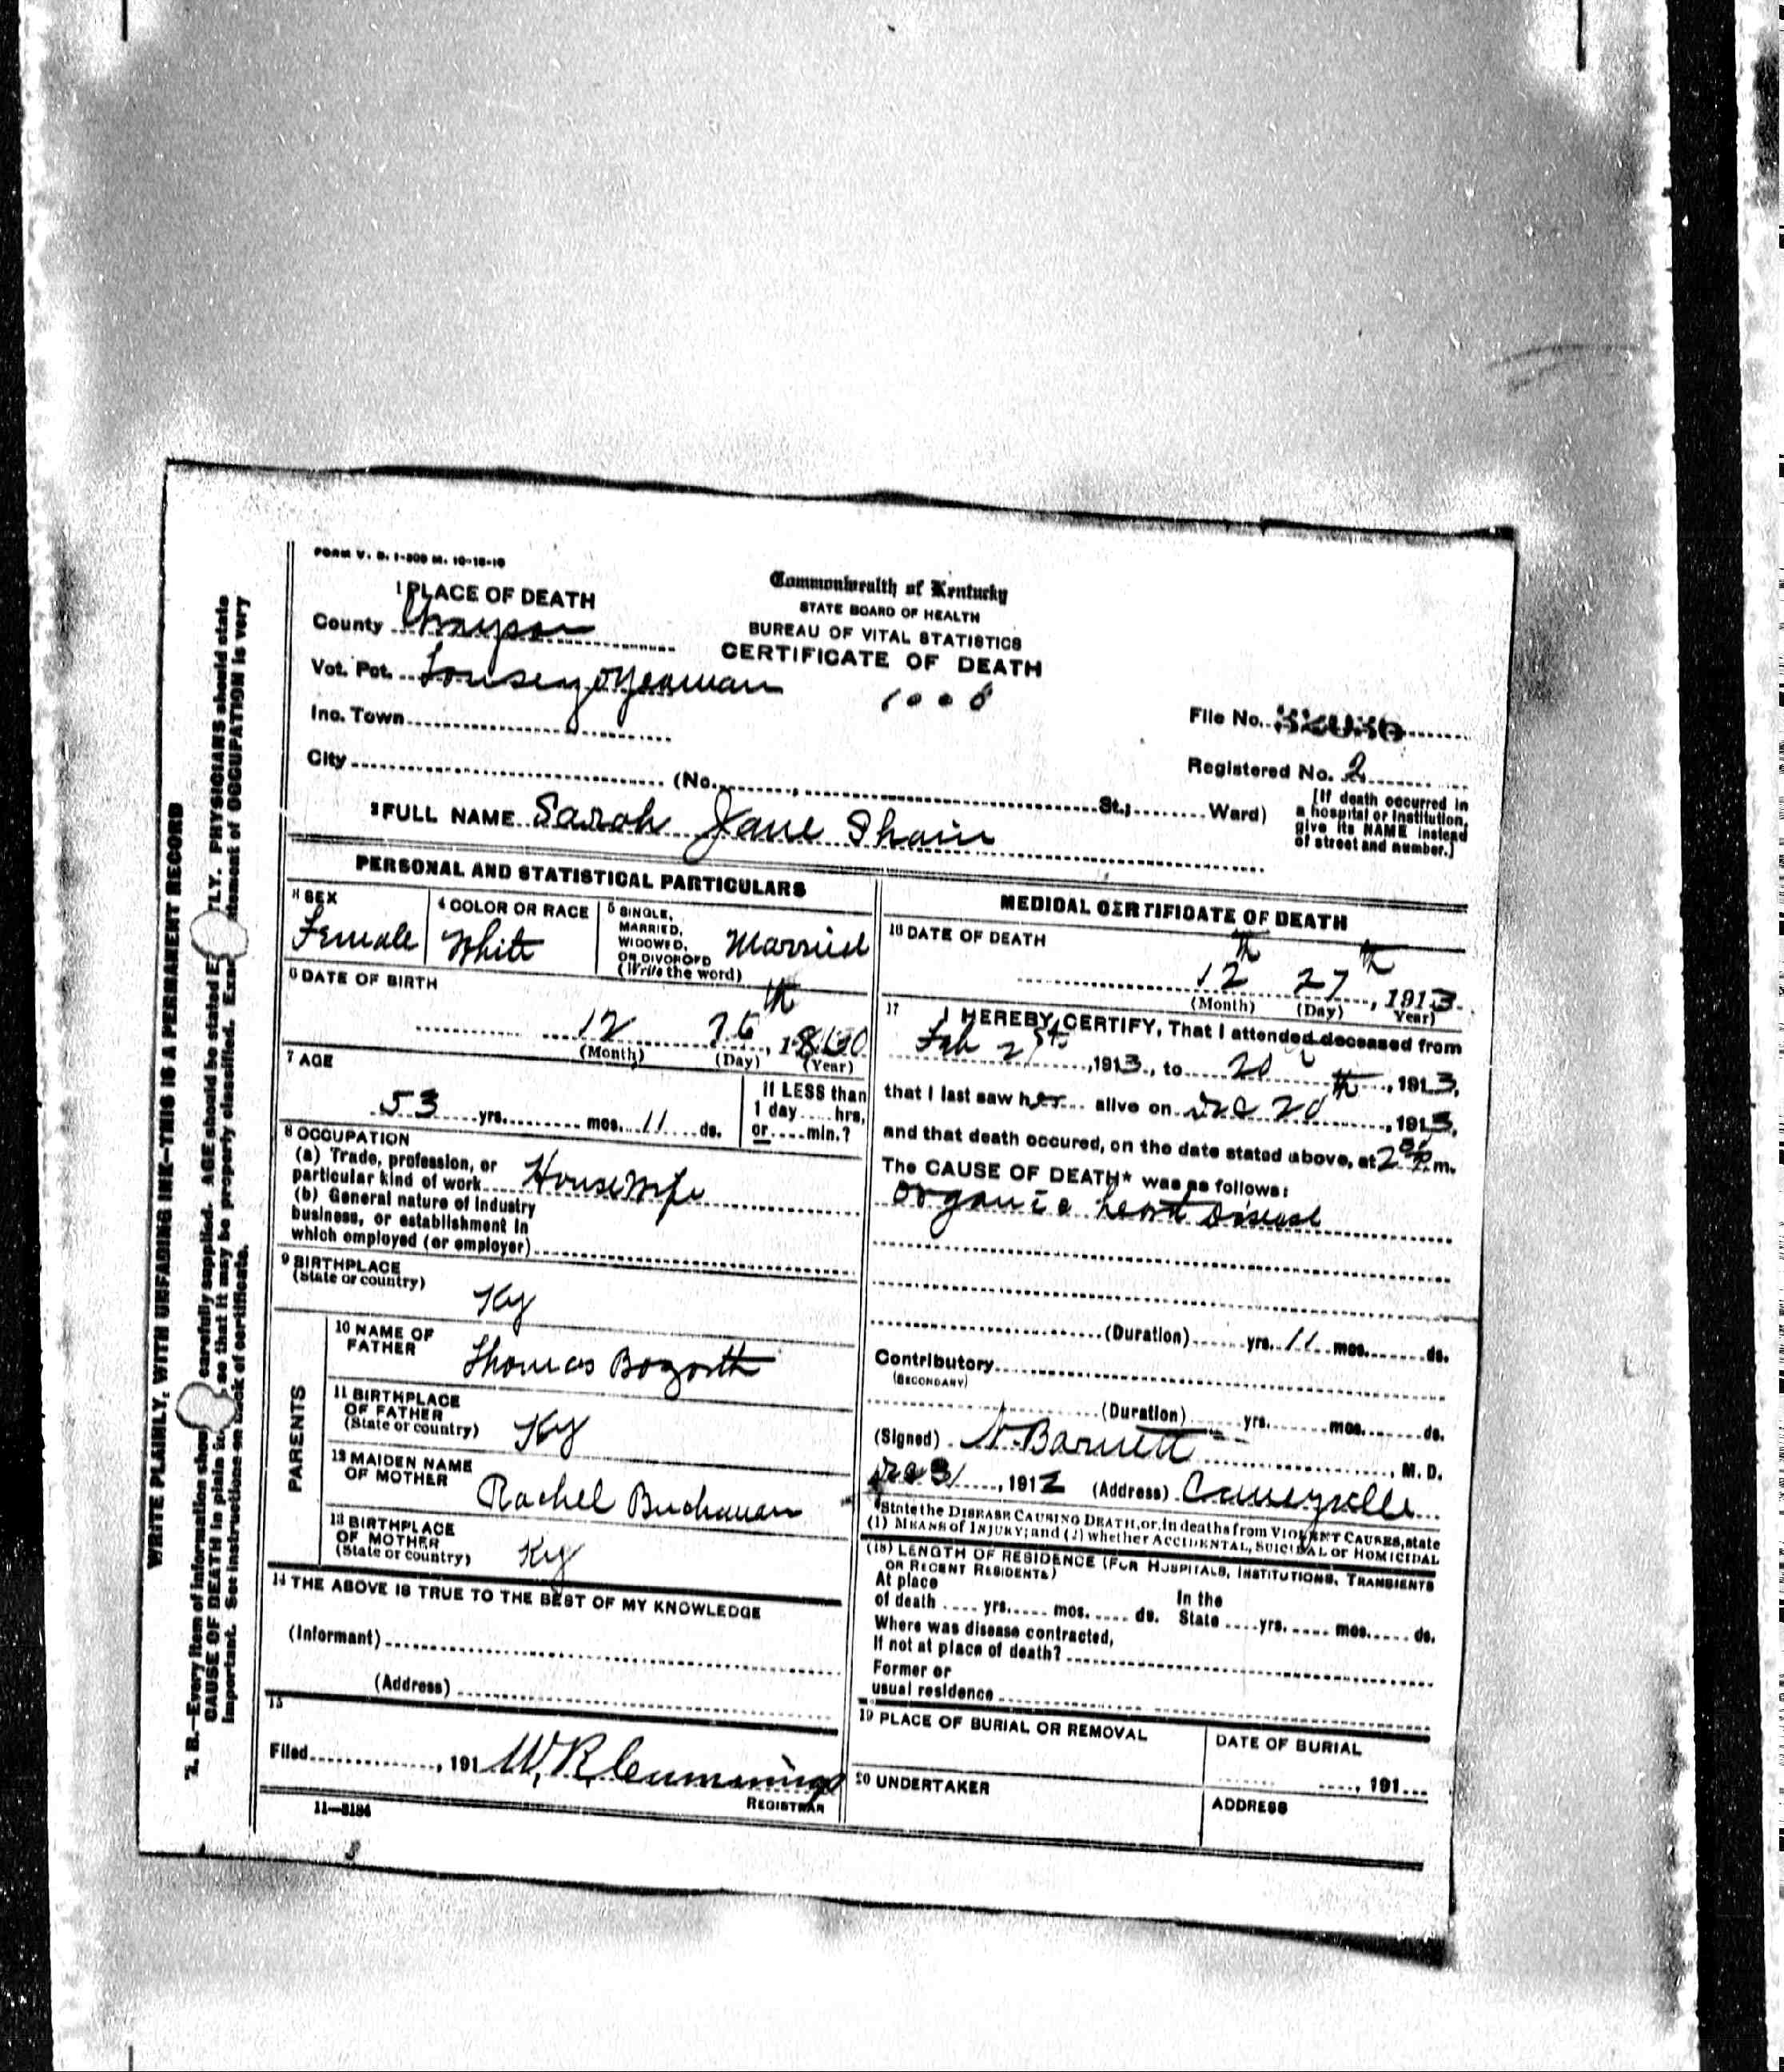 FORM V. S. 1-500 M. 10-18-10
1 PLACE OF DEATH
County Grayson
Vot. Pct.
Inc. Town
City (No. , St.; Ward)
Commonwealth of Kentucky
STATE BOARD OF HEALTH
BUREAU OF VITAL STATISTICS
CERTIFICATE OF DEATH
1008
File No.
Registered No. 2
[If death occurred in
a hospital or institution,
give its NAME instead
of street and number.]
2 FULL NAME Sarah Jane Shain
PERSONAL AND STATISTICAL PARTICULARS
3 SEX
Female
4 COLOR OR RACE
White
5 SINGLE,
MARRIED,
WIDOWED,
OR DIVORCED
(Write the word)
Married
6 DATE OF BIRTH
12 th, 1860
(Month) (Day) (Year)
7 AGE
53 yrs. mos. 11 ds.
If LESS than
1 day hrs.
or min.?
8 OCCUPATION
(a) Trade, profession, or
particular kind of work Housewife
(b) General nature of industry
business, or establishment in
which employed (or employer)
9 BIRTHPLACE
(State or country)
Ky
PARENTS
10 NAME OF
FATHER
Thomas Bozorth
11 BIRTHPLACE
OF FATHER
(State or country)
Ky
12 MAIDEN NAME
OF MOTHER
Rachel Buchanan
13 BIRTHPLACE
OF MOTHER
(State or country)
Ky
14 THE ABOVE IS TRUE TO THE BEST OF MY KNOWLEDGE
(Informant)
(Address)
15
Filed , 191 W. R. Cummings
REGISTRAR
11-3184
MEDICAL CERTIFICATE OF DEATH
16 DATE OF DEATH
12 th 27 th, 1913
(Month) (Day) Year)
17 I HEREBY CERTIFY, That I attended deceased from
Feb , 1913, to 20 th, 1913,
that I last saw her alive on Dec 20, 1913,
and that death occured, on the date stated above, at 2 P.m.
The CAUSE OF DEATH* was as follows:
organic heart Disease
(Duration) yrs. 11 mos. ds.
Contributory
(SECONDARY)
(Duration) yrs. mos. ds.
(Signed) Barnett, M. D.
Dec 31, 191 (Address) Caneyville
*State the DISEASE CAUSING DEATH, or, in deaths from VIOLENT CAUSES, state
(1) MEANS of INJURY; and (2) whether ACCIDENTAL, SUICIDAL or HOMICIDAL
(18) LENGTH OF RESIDENCE (FOR HOSPITALS, INSTITUTIONS, TRANSIENTS
OR RECENT RESIDENTS)
At place In the
of death yrs. mos. ds. State yrs. mos. ds.
Where was disease contracted,
If not at place of death?
Former or
usual residence
19 PLACE OF BURIAL OR REMOVAL
DATE OF BURIAL
, 191
20 UNDERTAKER
ADDRESS
WRITE PLAINLY, WITH UNFADING INK—THIS IS A PERMANENT RECORD
N. B.—Every item of information carefully supplied. AGE should be stated PHYSICIANS should state
CAUSE OF DEATH in plain so that it may be properly classified. of OCCUPATION is very
important. See instructions on of certificate.